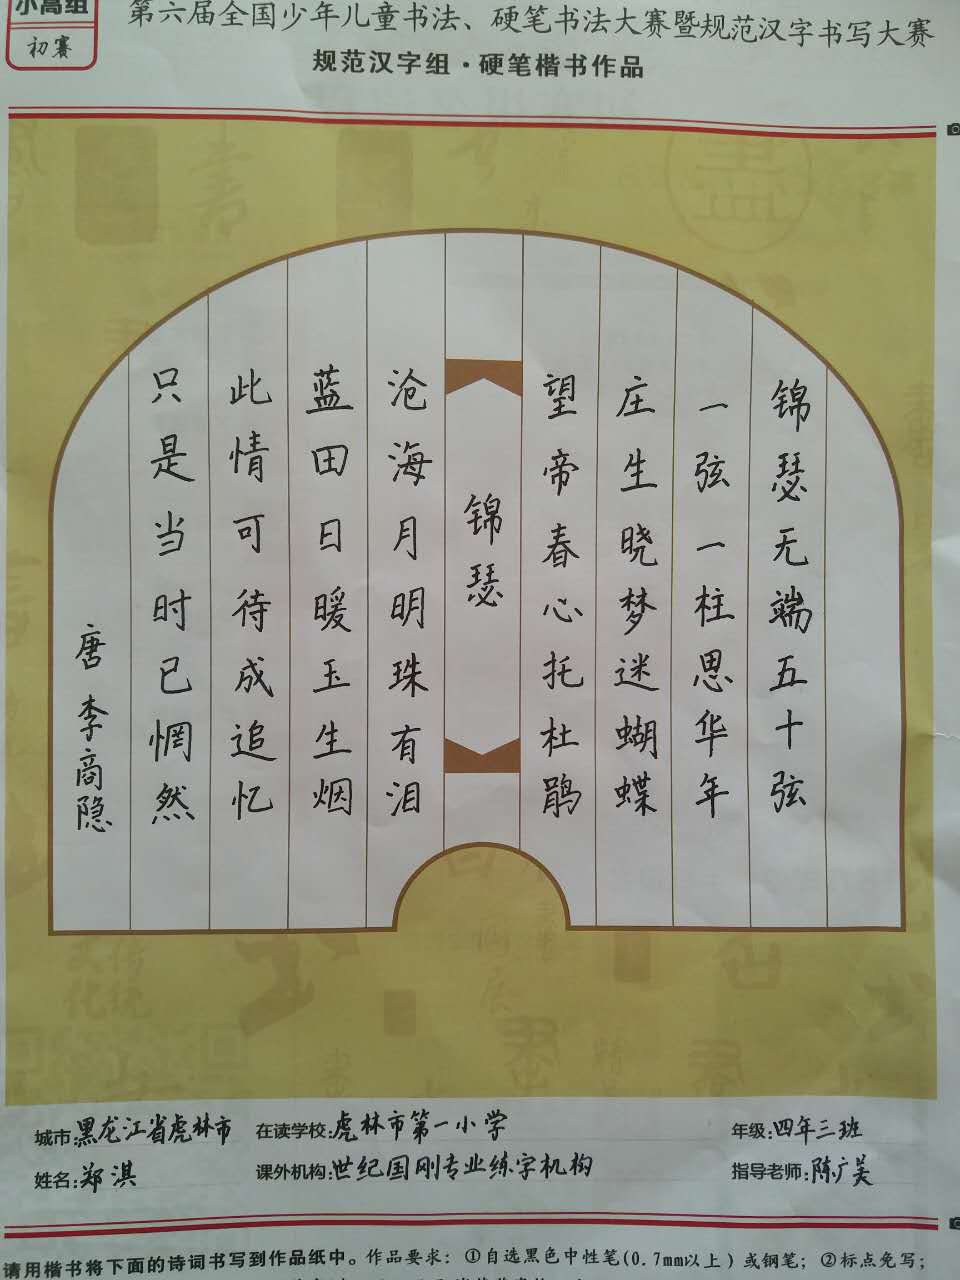 小高组
初赛
第六届全国少年儿童书法、硬笔书法大赛暨规范汉字书写大赛
规范汉字组·硬笔楷书作品
锦瑟无端五十弦
一弦一柱思华年
庄生晓梦迷蝴蝶
望帝春心托杜鹃
锦瑟
沧海月明珠有泪
蓝田日暖玉生烟
此情可待成追忆
只是当时已惘然
唐 李商隐
城市:黑龙江省虎林市 在读学校:虎林市第一小学 年级:四年三班
姓名:郑淇 课外机构:世纪国刚专业练字机构 指导老师:陈广美
请用楷书将下面的诗词书写到作品纸中。作品要求：①自选黑色中性笔(0.7mm以上）或钢笔；②标点免写；